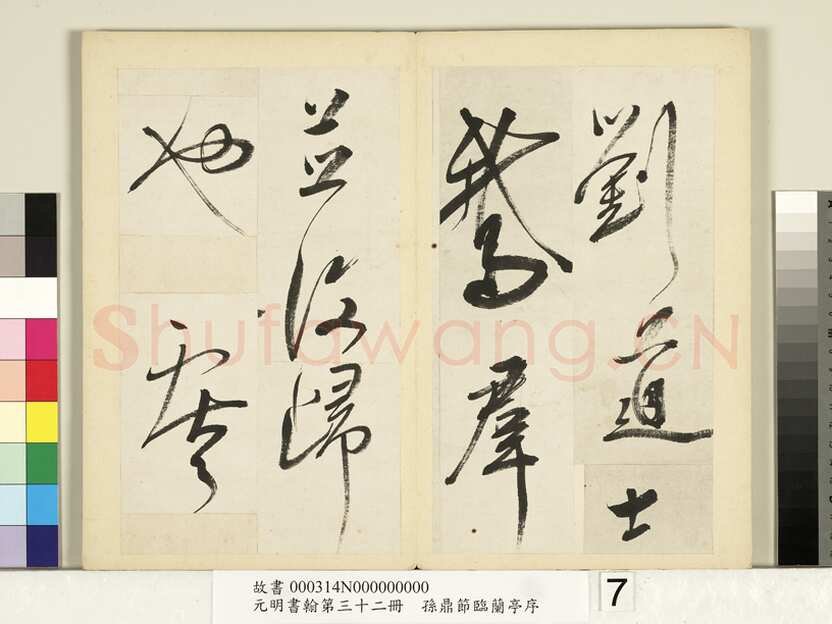 劉道士
鵞羣
並復歸
也
Shufawang.CN
故書 000314N000000000
元明書翰第三十二冊　孫鼎節臨蘭亭序
7